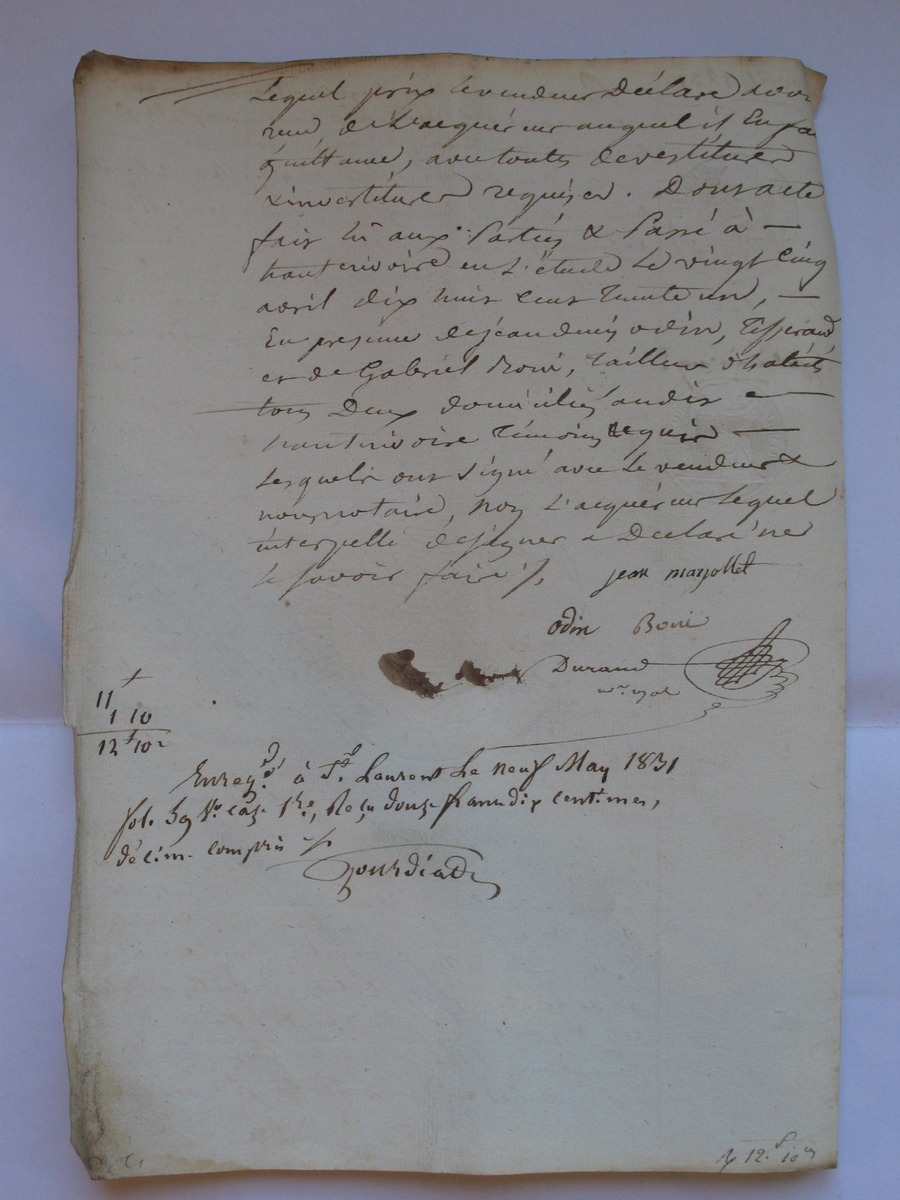 Lequel prix le vendeur Déclare avoir
reçu de l'acquéreur auquel il En passe
quittance, avec toutes devestitures
& investitures requises. Dont acte
fait lû aux Parties & Passé à —
hauterivoire en L'étude Le vingt Cinq
avril dix huit cent trente un, —
En presence de jean denis odin, Tisserand
et de Gabriel Boni, tailleur d'habits
tous Deux domiciliés audit —
hauterivoire témoins requis —
Lesquels ont signé avec Le vendeur &
nous notaire, non L'acquéreur Lequel
interpellé de signer a Déclaré ne
le savoir faire ./.
jean marjollet
odin Boni
Durand
11 f
1 10
12 f 10 c
Enregé. à St. Laurent Le neuf May 1831
fol. 39 Vo. case 1re., Reçu douze francs dix centimes,
décime compris
Gourdiad
12 f 10 c